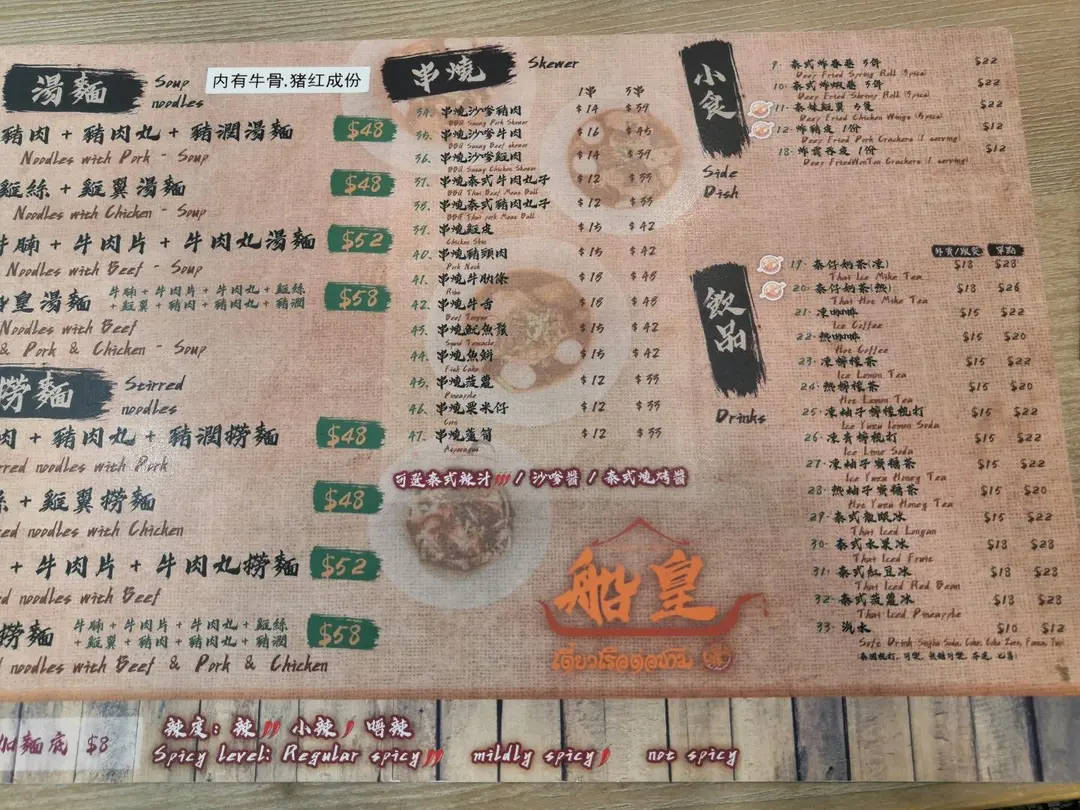 湯麵 Soup noodles
内有牛骨.猪红成份
豬肉 + 豬肉丸 + 豬潤湯麵 $48
Noodles with Pork - Soup
雞絲 + 雞翼湯麵 $48
Noodles with Chicken - Soup
牛腩 + 牛肉片 + 牛肉丸湯麵 $52
Noodles with Beef - Soup
皇湯麵 牛腩 + 牛肉片 + 牛肉丸 + 雞絲 $58
+ 雞翼 + 豬肉 + 豬肉丸 + 豬潤
Noodles with Beef
& Pork & Chicken - Soup
撈麵 Stirred noodles
肉 + 豬肉丸 + 豬潤撈麵 $48
noodles with Pork
+ 雞翼撈麵 $48
noodles with Chicken
+ 牛肉片 + 牛肉丸撈麵 $52
noodles with Beef
撈麵 牛腩 + 牛肉片 + 牛肉丸 + 雞絲 $58
+ 雞翼 + 豬肉 + 豬肉丸 + 豬潤
noodles with Beef & Pork & Chicken
串燒 Skewer
1串 3串
34. 串燒沙嗲豬肉 $14 $39
BBQ Satay Pork Skewer
35. 串燒沙嗲牛肉 $16 $45
BBQ Satay Beef Skewer
36. 串燒沙嗲雞肉 $14 $39
BBQ Satay Chicken Skewer
37. 串燒泰式牛肉丸子 $12 $33
BBQ Thai Beef Meat Ball
38. 串燒泰式豬肉丸子 $12 $33
BBQ Thai Pork Meat Ball
39. 串燒雞皮 $15 $42
Chicken Skin
40. 串燒豬頸肉 $15 $42
Pork Neck
41. 串燒牛肋條 $16 $45
Ribs
42. 串燒牛舌 $16 $45
Beef Tongue
43. 串燒魷魚鬚 $15 $42
Squid Tentacle
44. 串燒魚餅 $15 $42
Fish Cake
45. 串燒菠蘿 $12 $33
Pineapple
46. 串燒粟米仔 $12 $33
Corn
47. 串燒蘆筍 $12 $33
Asparagus
可選泰式辣汁 / 沙嗲醬 / 泰式燒烤醬
船皇
小食
Side Dish
9. 泰式炸春卷 3件 $22
Deep Fried Spring Roll (3pics)
10. 泰式炸蝦卷 3件 $22
Deep Fried Shrimp Roll (3pics)
11. 泰妹雞翼 3隻 $22
Deep Fried Chicken Wings (3pics)
12. 炸豬皮 1份 $12
Deep Fried Pork Crackers (1 serving)
18. 炸雲吞皮 1份 $12
Deep Fried WonTon Crackers (1 serving)
飲品
Drinks
單點
19. 泰仔奶茶(凍) $18 $28
Thai Ice Milk Tea
20. 泰仔奶茶(熱) $18 $26
Thai Hot Milk Tea
21. 凍咖啡 $15 $22
Ice Coffee
22. 熱咖啡 $15 $20
Hot Coffee
23. 凍檸檬茶 $15 $22
Ice Lemon Tea
24. 熱檸檬茶 $15 $20
Hot Lemon Tea
25. 凍柚子檸檬梳打 $15 $22
Ice Yuzu Lemon Soda
26. 凍青檸梳打 $15 $22
Ice Lime Soda
27. 凍柚子蜜糖茶 $15 $22
Ice Yuzu Honey Tea
28. 熱柚子蜜糖茶 $15 $20
Hot Yuzu Honey Tea
29. 泰式龍眼冰 $15 $22
Thai Iced Longan
30. 泰式水果冰 $18 $28
Thai Iced Fruit
31. 泰式紅豆冰 $18 $28
Thai Iced Red Bean
32. 泰式菠蘿冰 $18 $28
Thai Iced Pineapple
33. 汽水 $10 $12
加麵底 $8
辣度: 辣 小辣 唔辣
Spicy Level: Regular spicy mildly spicy not spicy